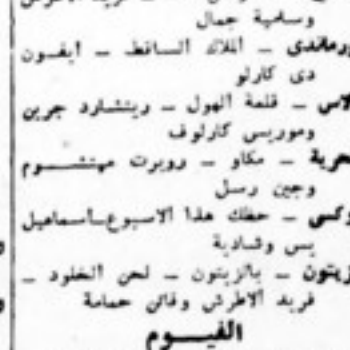 وسامية جمال
ورماندى – الملاك الساقط – ايفون
دى كارلو
لاس – قلعة الهول – ريتشارد جرين
وموريس كارلوف
حرية – مكاو – روبرت مهتشـــوم
وجين رسل
وكسى – حظك هذا الاسبوع–اسماعيل
يس وشادية
زيتون – بالزيتون – لحن الخلود –
فريد الاطرش وفاتن حمامة
الفيـــوم